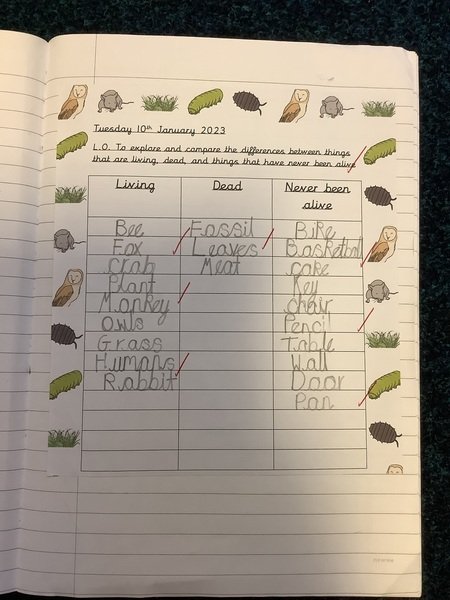 Tuesday 10th January 2023
L.O. To explore and compare the differences between things
that are living, dead, and things that have never been alive
Living Dead Never been
alive
Bee Fossil Bike
Fox Leaves Basketball
Crab Meat cake
Plant Key
Monkey chair
Owls Pencil
Grass Table
Humans Wall
Rabbit Door
Pan